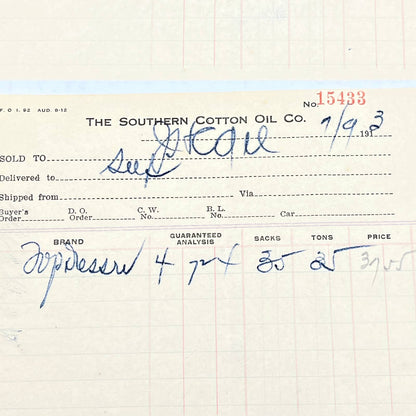 F. O 1. 92 AUG. 8-12
No. 15433
THE SOUTHERN COTTON OIL CO. 7/9 1913
SOLD TO
Delivered to
Shipped from Via
Buyer's Order D. O. Order C. W. No. B. L. No. Car
BRAND GUARANTEED ANALYSIS SACKS TONS PRICE
Top Dresser 4 7 2 4 35 35